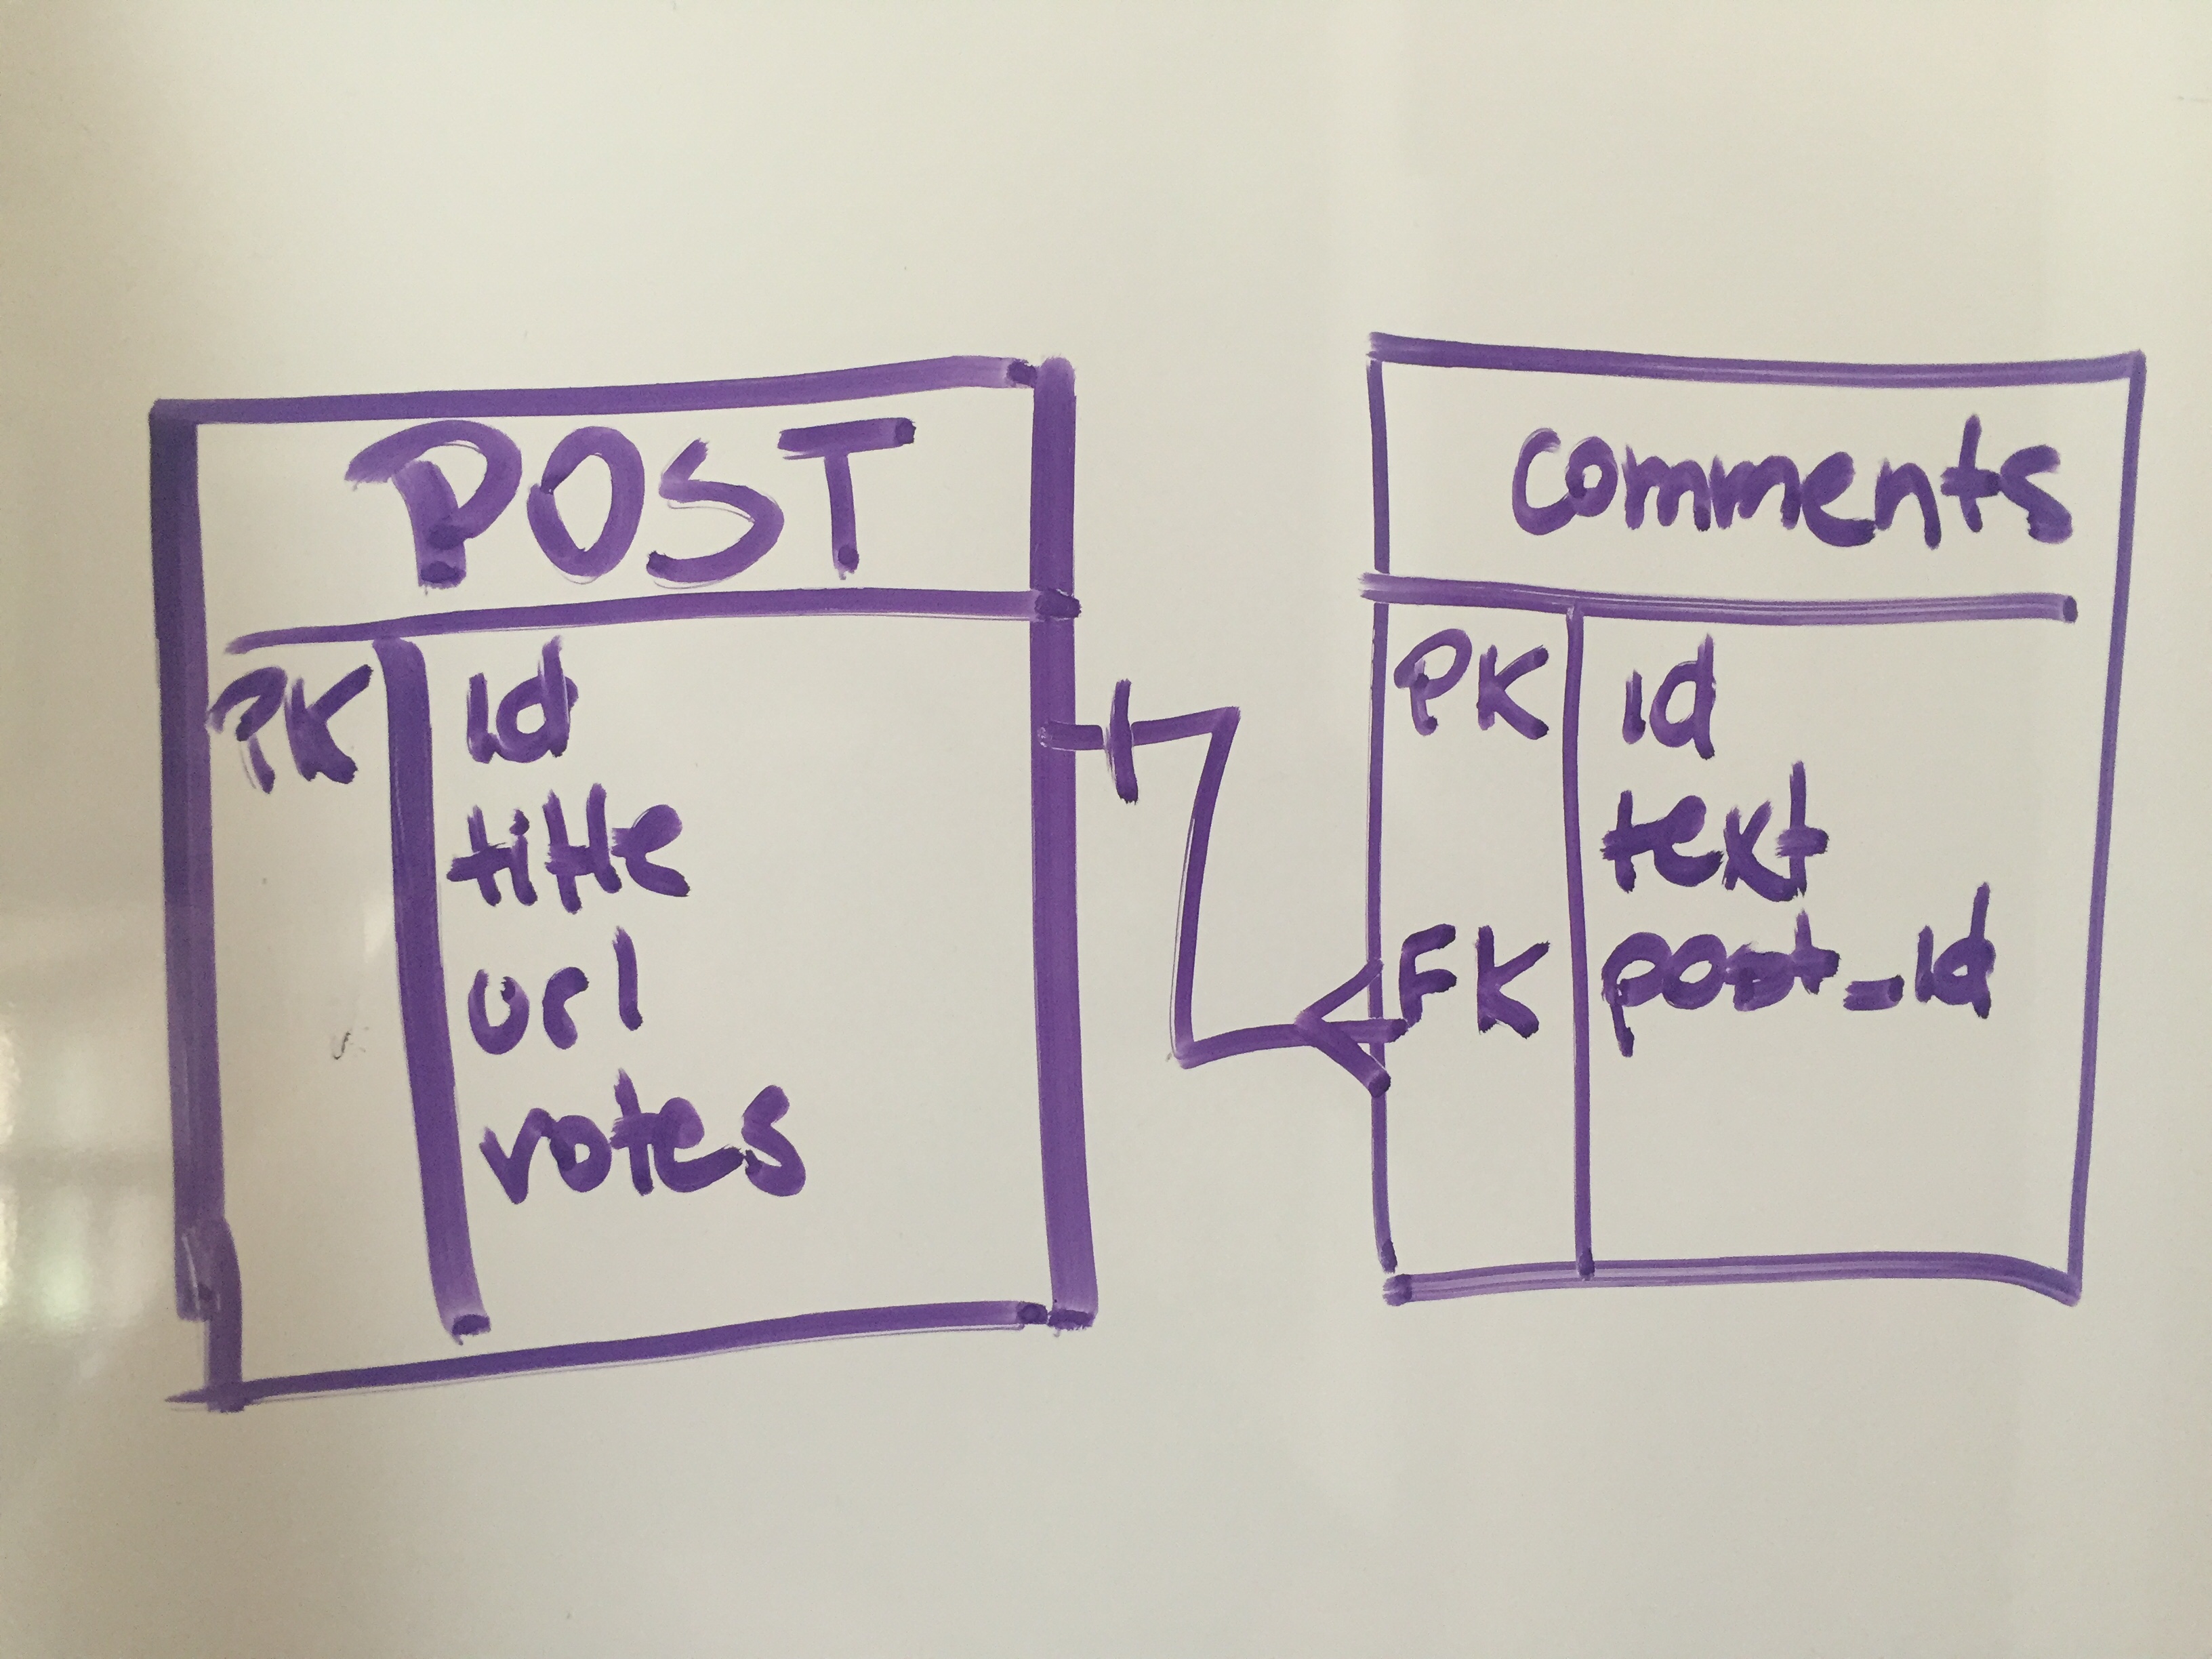 POST
PK id
title
url
votes
comments
PK id
text
FK post_id